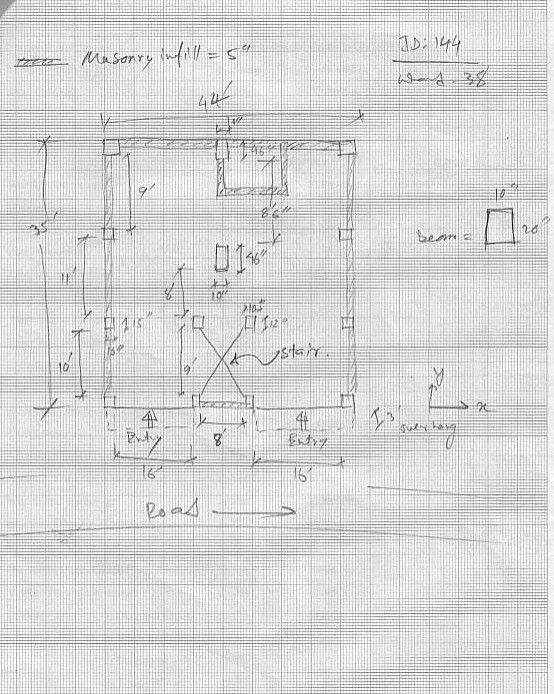 Masonry infill = 5"
ID: 144
Ward - 38
44'
9'
35'
8'6"
10"
Beam =
20"
46"
11'
8'
10"
10"
15"
12"
10'
9'
Stair.
Y
x
3'
overhang
Entry
8'
Entry
16'
16'
Road